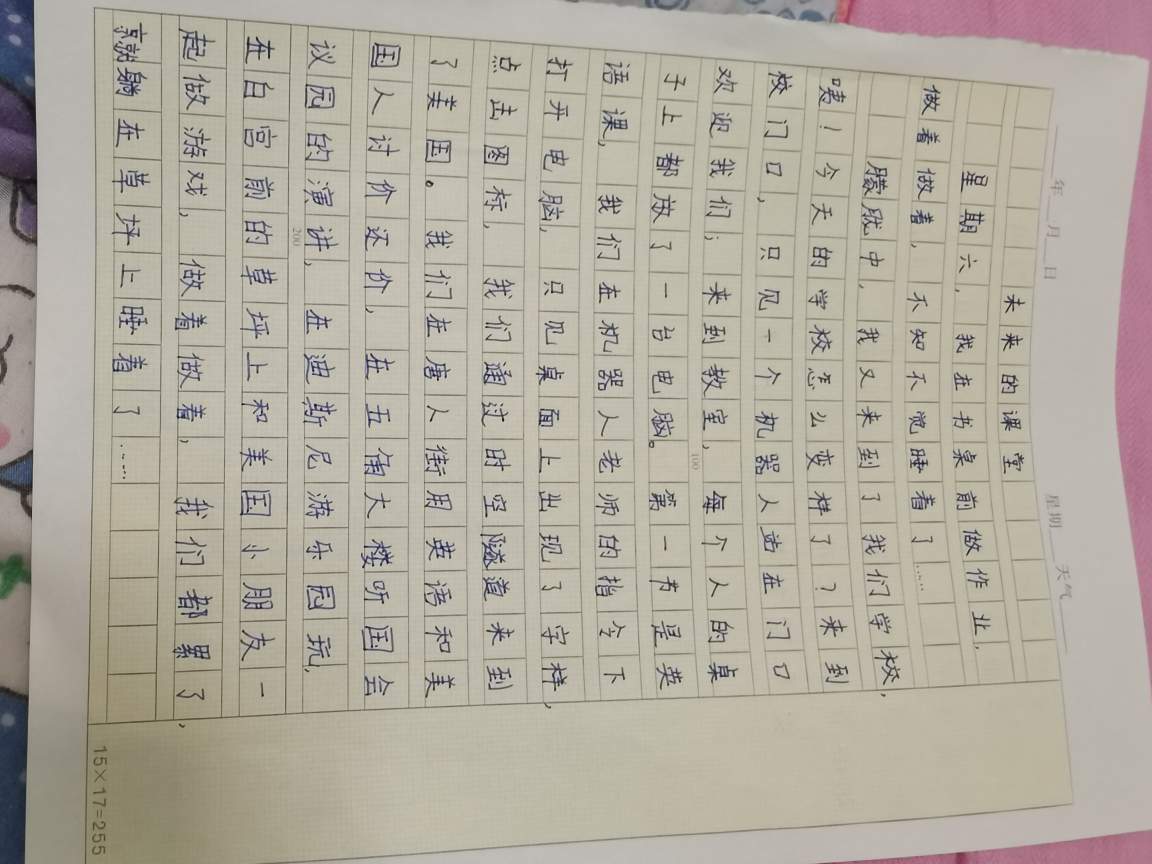 年 月 日 星期 天气
未来的课堂
星期六，我在书桌前做作业，
做着做着，不知不觉睡着了……
朦胧中，我又来到了我们学校，
咦！今天的学校怎么变样了？来到
校门口，只见一个机器人站在门口
欢迎我们；来到教室，每个人的桌
100
子上都放了一台电脑。第一节是英
语课，我们在机器人老师的指令下
打开电脑，只见桌面上出现了字样，
点击图标，我们通过时空隧道来到
了美国。我们在唐人街用英语和美
国人讨价还价，在五角大楼听国会
议园的演讲，在迪斯尼游乐园玩，
200
在白宫前的草坪上和美国小朋友一
起做游戏，做着做着，我们都累了，
就躺在草坪上睡着了……
15×17=255